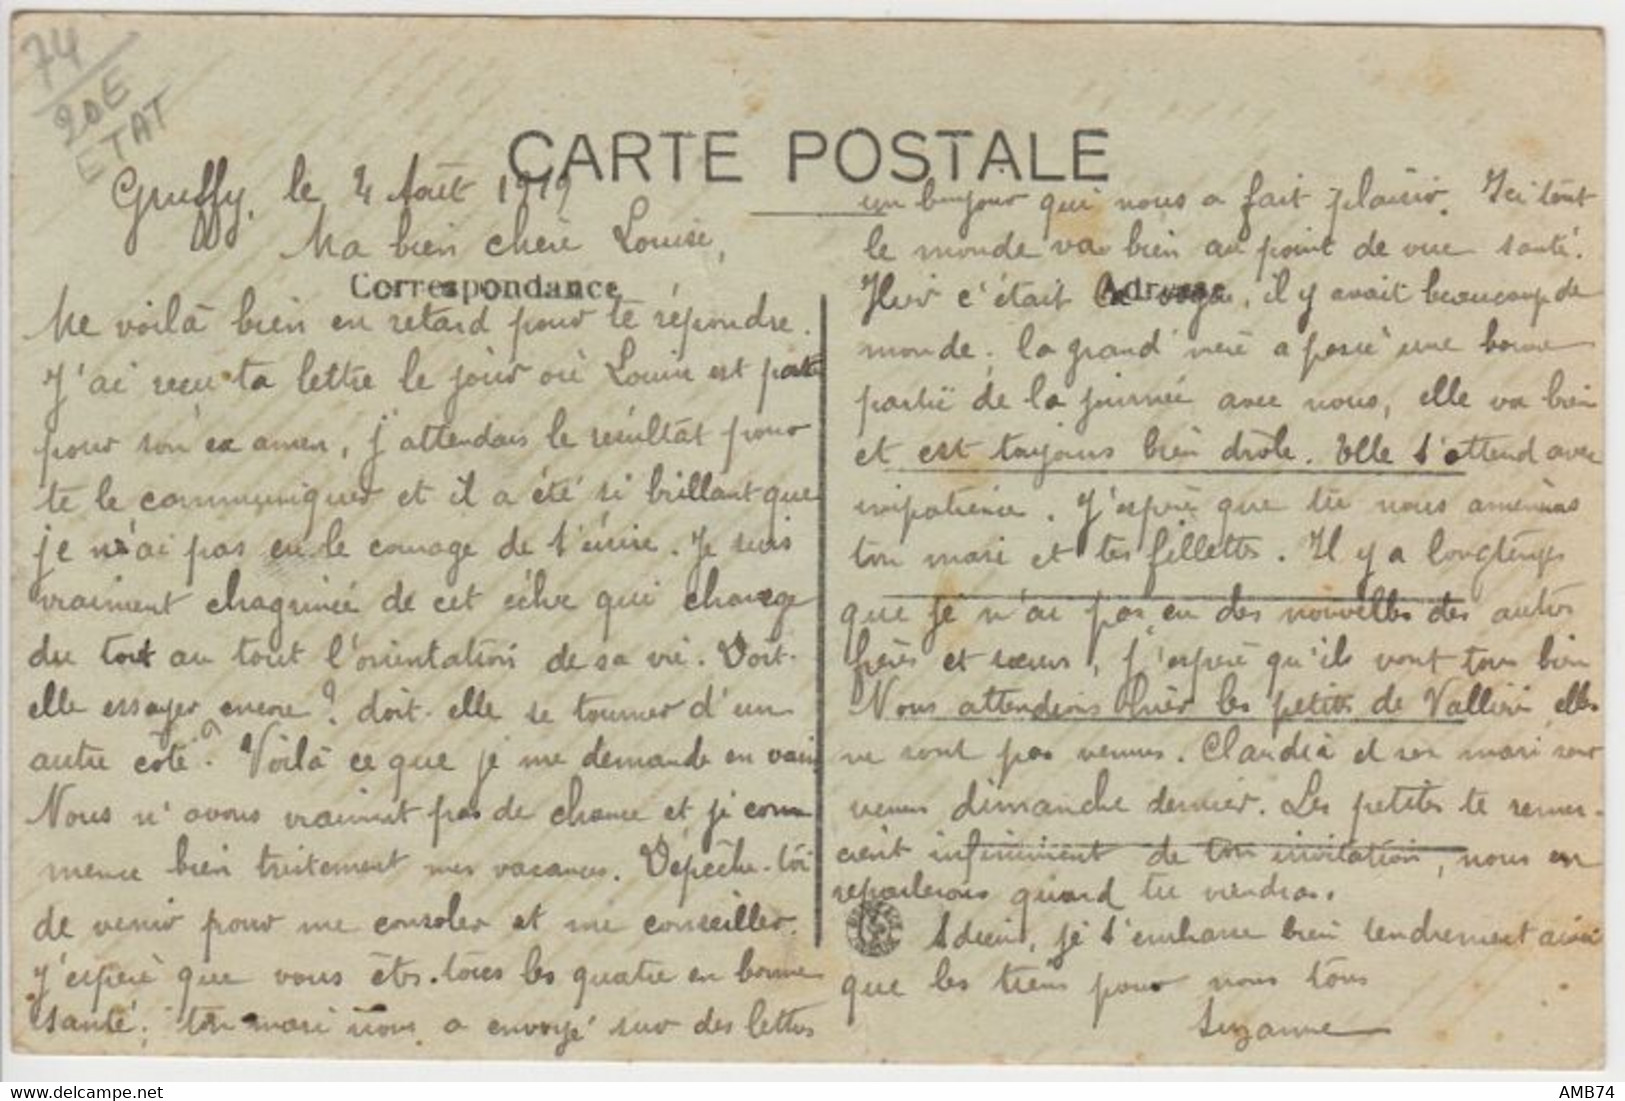 74
20E
ETAT
CARTE POSTALE
Gruffy, le 4 Août 1919
Ma bien chère Louise,
Correspondance
Me voilà bien en retard pour te répondre.
J'ai reçu ta lettre le jour où Louise est partie
pour son examen, j'attendais le résultat pour
te le communiquer et il a été si brillant que
je n'ai pas eu le courage de t'écrire. Je suis
vraiment chagrinée de cet échec qui change
du tout au tout l'orientation de sa vie. Doit-
elle essayer encore? doit-elle se tourner d'un
autre côté? Voilà ce que je me demande en vain
Nous n'avons vraiment pas de chance et je com
mence bien tristement mes vacances. Dépêche-toi
de venir pour me consoler et me conseiller.
J'espère que vous êtes tous les quatre en bonne
santé; ton mari nous a envoyé sur des lettres
un bonjour qui nous a fait plaisir. Ici tout
le monde va bien au point de vue santé.
Adresse
Hier c'était la vogue, il y avait beaucoup de
monde. la grand'mère a passé une bonne
partie de la journée avec nous, elle va bien
et est toujours bien drôle. Elle t'attend avec
impatience. J'espère que tu nous amèneras
ton mari et tes fillettes. Il y a longtemps
que je n'ai pas eu des nouvelles des autres
frères et sœurs, j'espère qu'ils vont tous bien
Nous attendions hier les petites de Vallière, elles
ne sont pas venues. Claudia et son mari sont
venus dimanche dernier. Les petites te remer-
cient infiniment de ton invitation, nous en
reparlerons quand tu viendras.
Adieu, je t'embrasse bien tendrement ainsi
que les tiens pour nous tous
Suzanne
AMB74